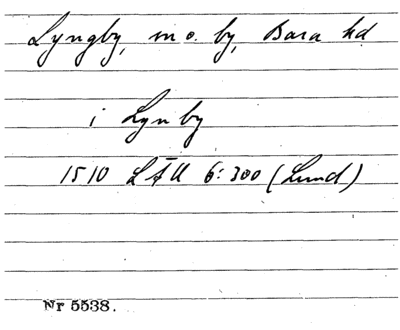 Lyngby, sn o. by, Bara hd
i Lynby
1510 LÄU 6:300 (Lund)
Nr 5538.